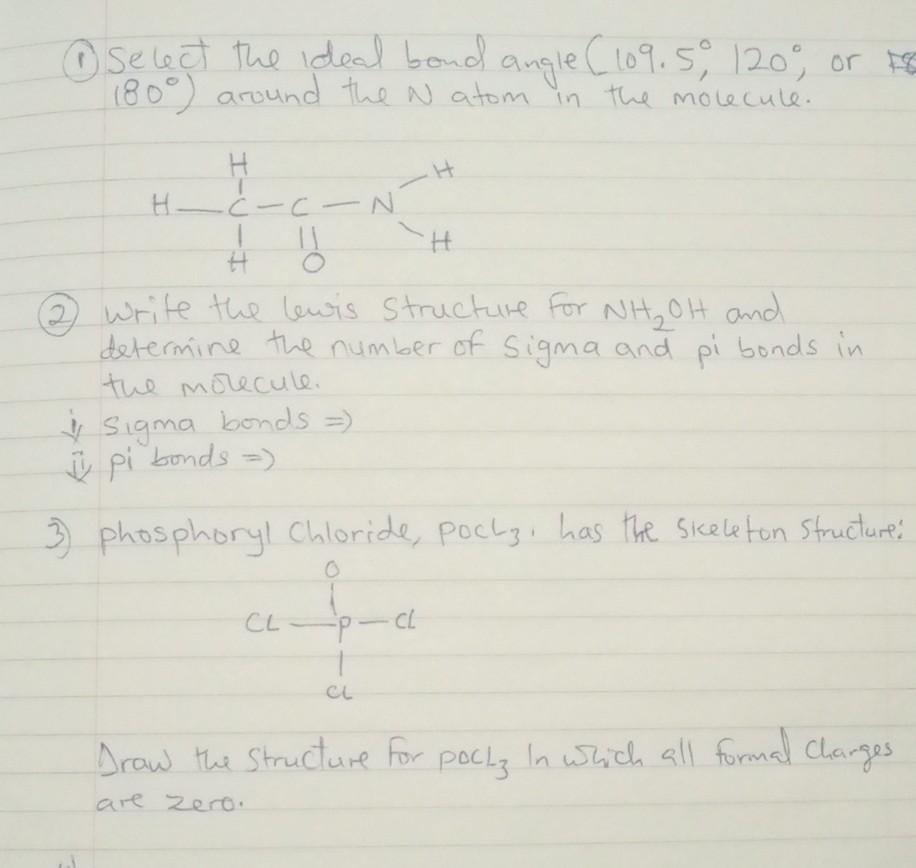 ① Select the ideal bond angle (109.5°, 120°, or
180°) around the N atom in the molecule.
H H
H—C—C—N
H O H
② Write the lewis structure for NH₂OH and
determine the number of sigma and pi bonds in
the molecule.
i sigma bonds =>
ii pi bonds =>
3) phosphoryl Chloride, POCL₃, has the skeleton structure:
O
CL—P—CL
CL
Draw the structure for POCL₃ in which all formal charges
are zero.